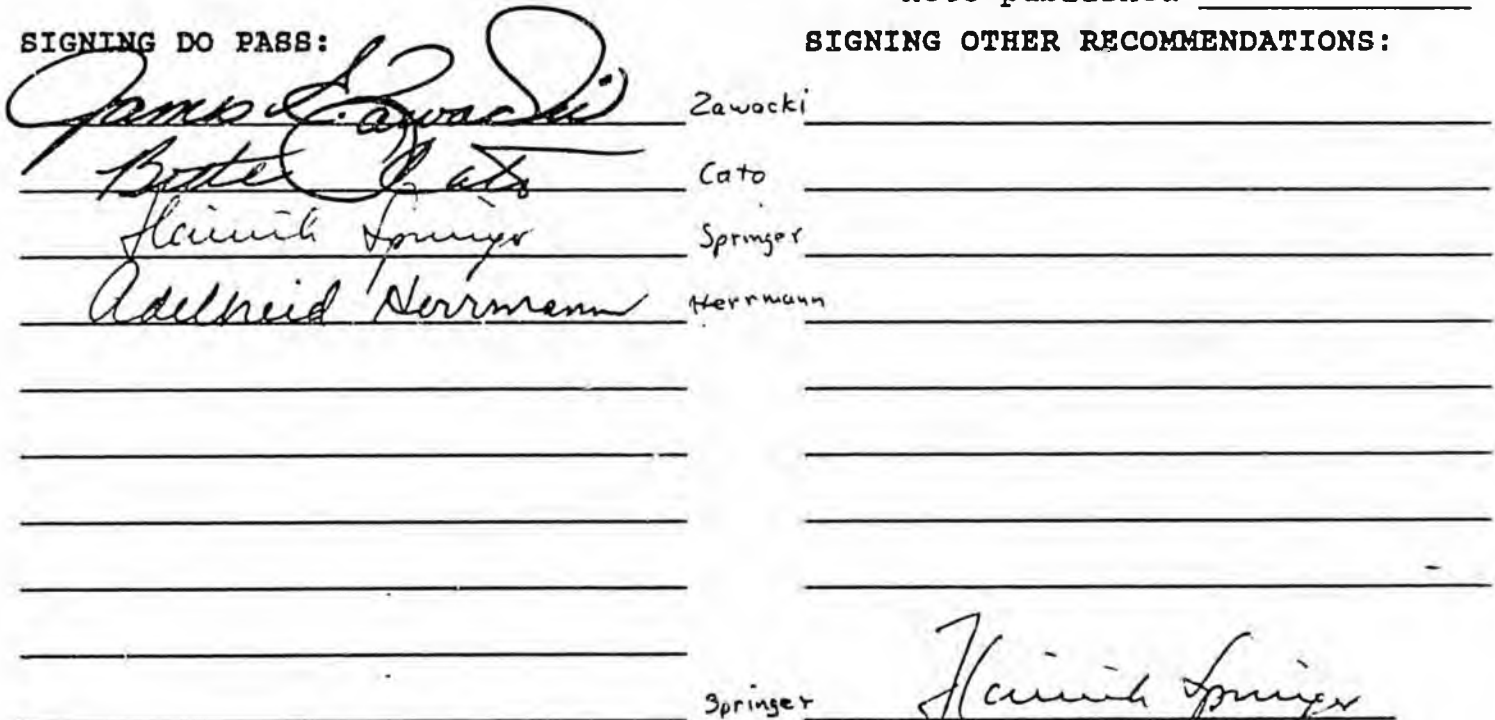 SIGNING DO PASS: SIGNING OTHER RECOMMENDATIONS:
James Zawacki Zawacki
Bette Cato Cato
Heinrich Springer Springer
Adelheid Herrmann Herrmann
Springer Heinrich Springer